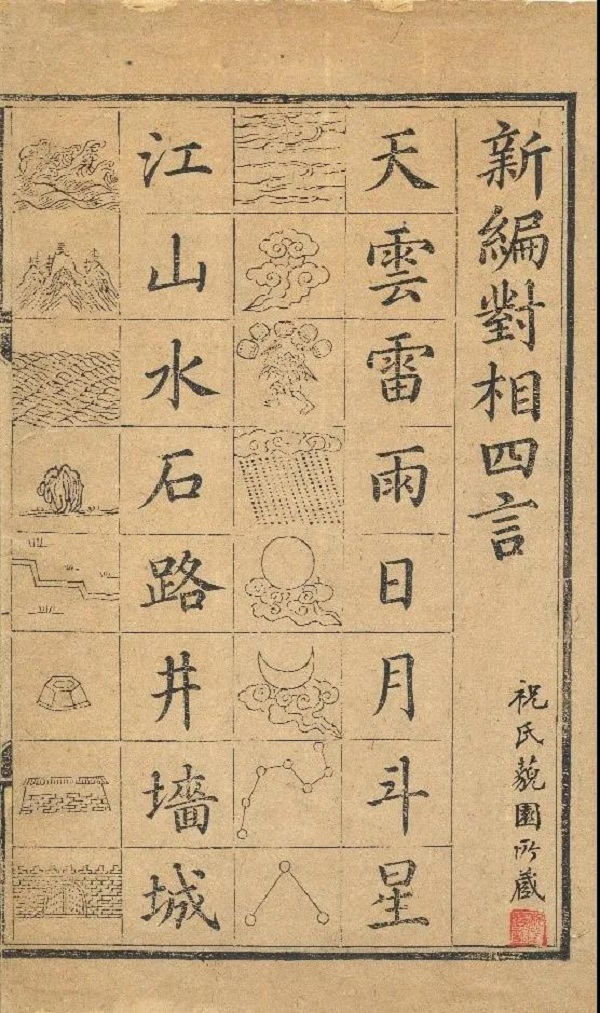 新編對相四言
祝氏藐園所藏
天雲雷雨日月斗星
江山水石路井墻城